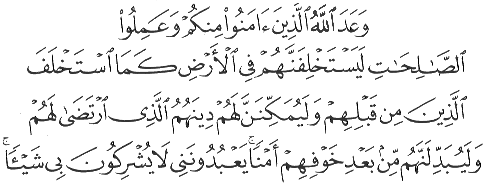 وَعَدَ ٱللَّهُ ٱلَّذِينَ ءَامَنُوا۟ مِنكُمْ وَعَمِلُوا۟
ٱلصَّـٰلِحَـٰتِ لَيَسْتَخْلِفَنَّهُمْ فِى ٱلْأَرْضِ كَمَا ٱسْتَخْلَفَ
ٱلَّذِينَ مِن قَبْلِهِمْ وَلَيُمَكِّنَنَّ لَهُمْ دِينَهُمُ ٱلَّذِى ٱرْتَضَىٰ لَهُمْ
وَلَيُبَدِّلَنَّهُم مِّنۢ بَعْدِ خَوْفِهِمْ أَمْنًا ۚ يَعْبُدُونَنِى لَا يُشْرِكُونَ بِى شَيْـًٔا ۚ